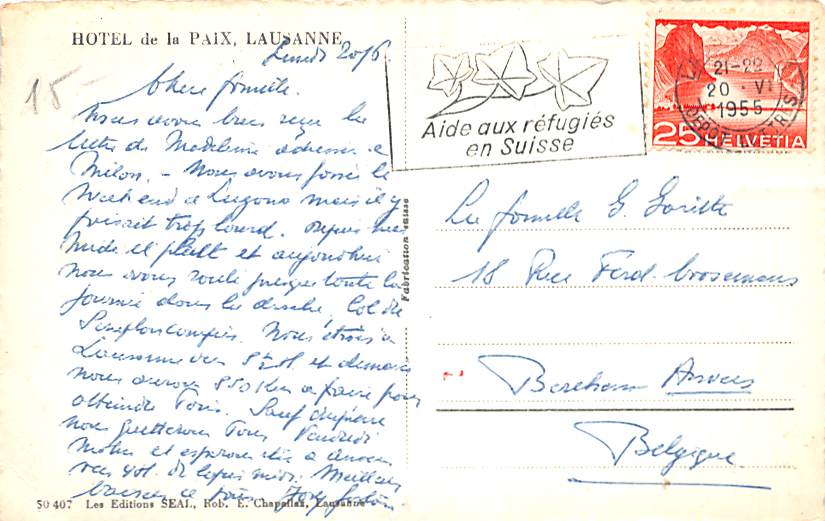 HOTEL de la PAIX, LAUSANNE
Lundi 20/6
15-
Chère famille.
Nous avons bien reçu la
lettre de Madeleine adressée a
Milan. - Nous avons passé le
Weekend a Lugano mais il y
faisait trop lourd. Depuis hier
il pleut et aujourd'hui
nous avons roulé presque toute la
journée dans la Col du
Simplon compris. Nous étions a
Lausanne vers et demain
nous avons 550 km a faire pour
atteindre Paris. Sauf
nous quitterons Paris Vendredi
matin et espérons être a Anvers
vers 4 h. de l'après midi. Meilleurs
baisers
50 407 Les Editions SEAL, Rob. E. Chapallaz, Lausanne
Fabrication suisse
Aide aux réfugiés
en Suisse
21-22
20 . VI
1955
25 HELVETIA
La famille G.
18 Rue Ferd. Coosemans
Berchem Anvers
Belgique